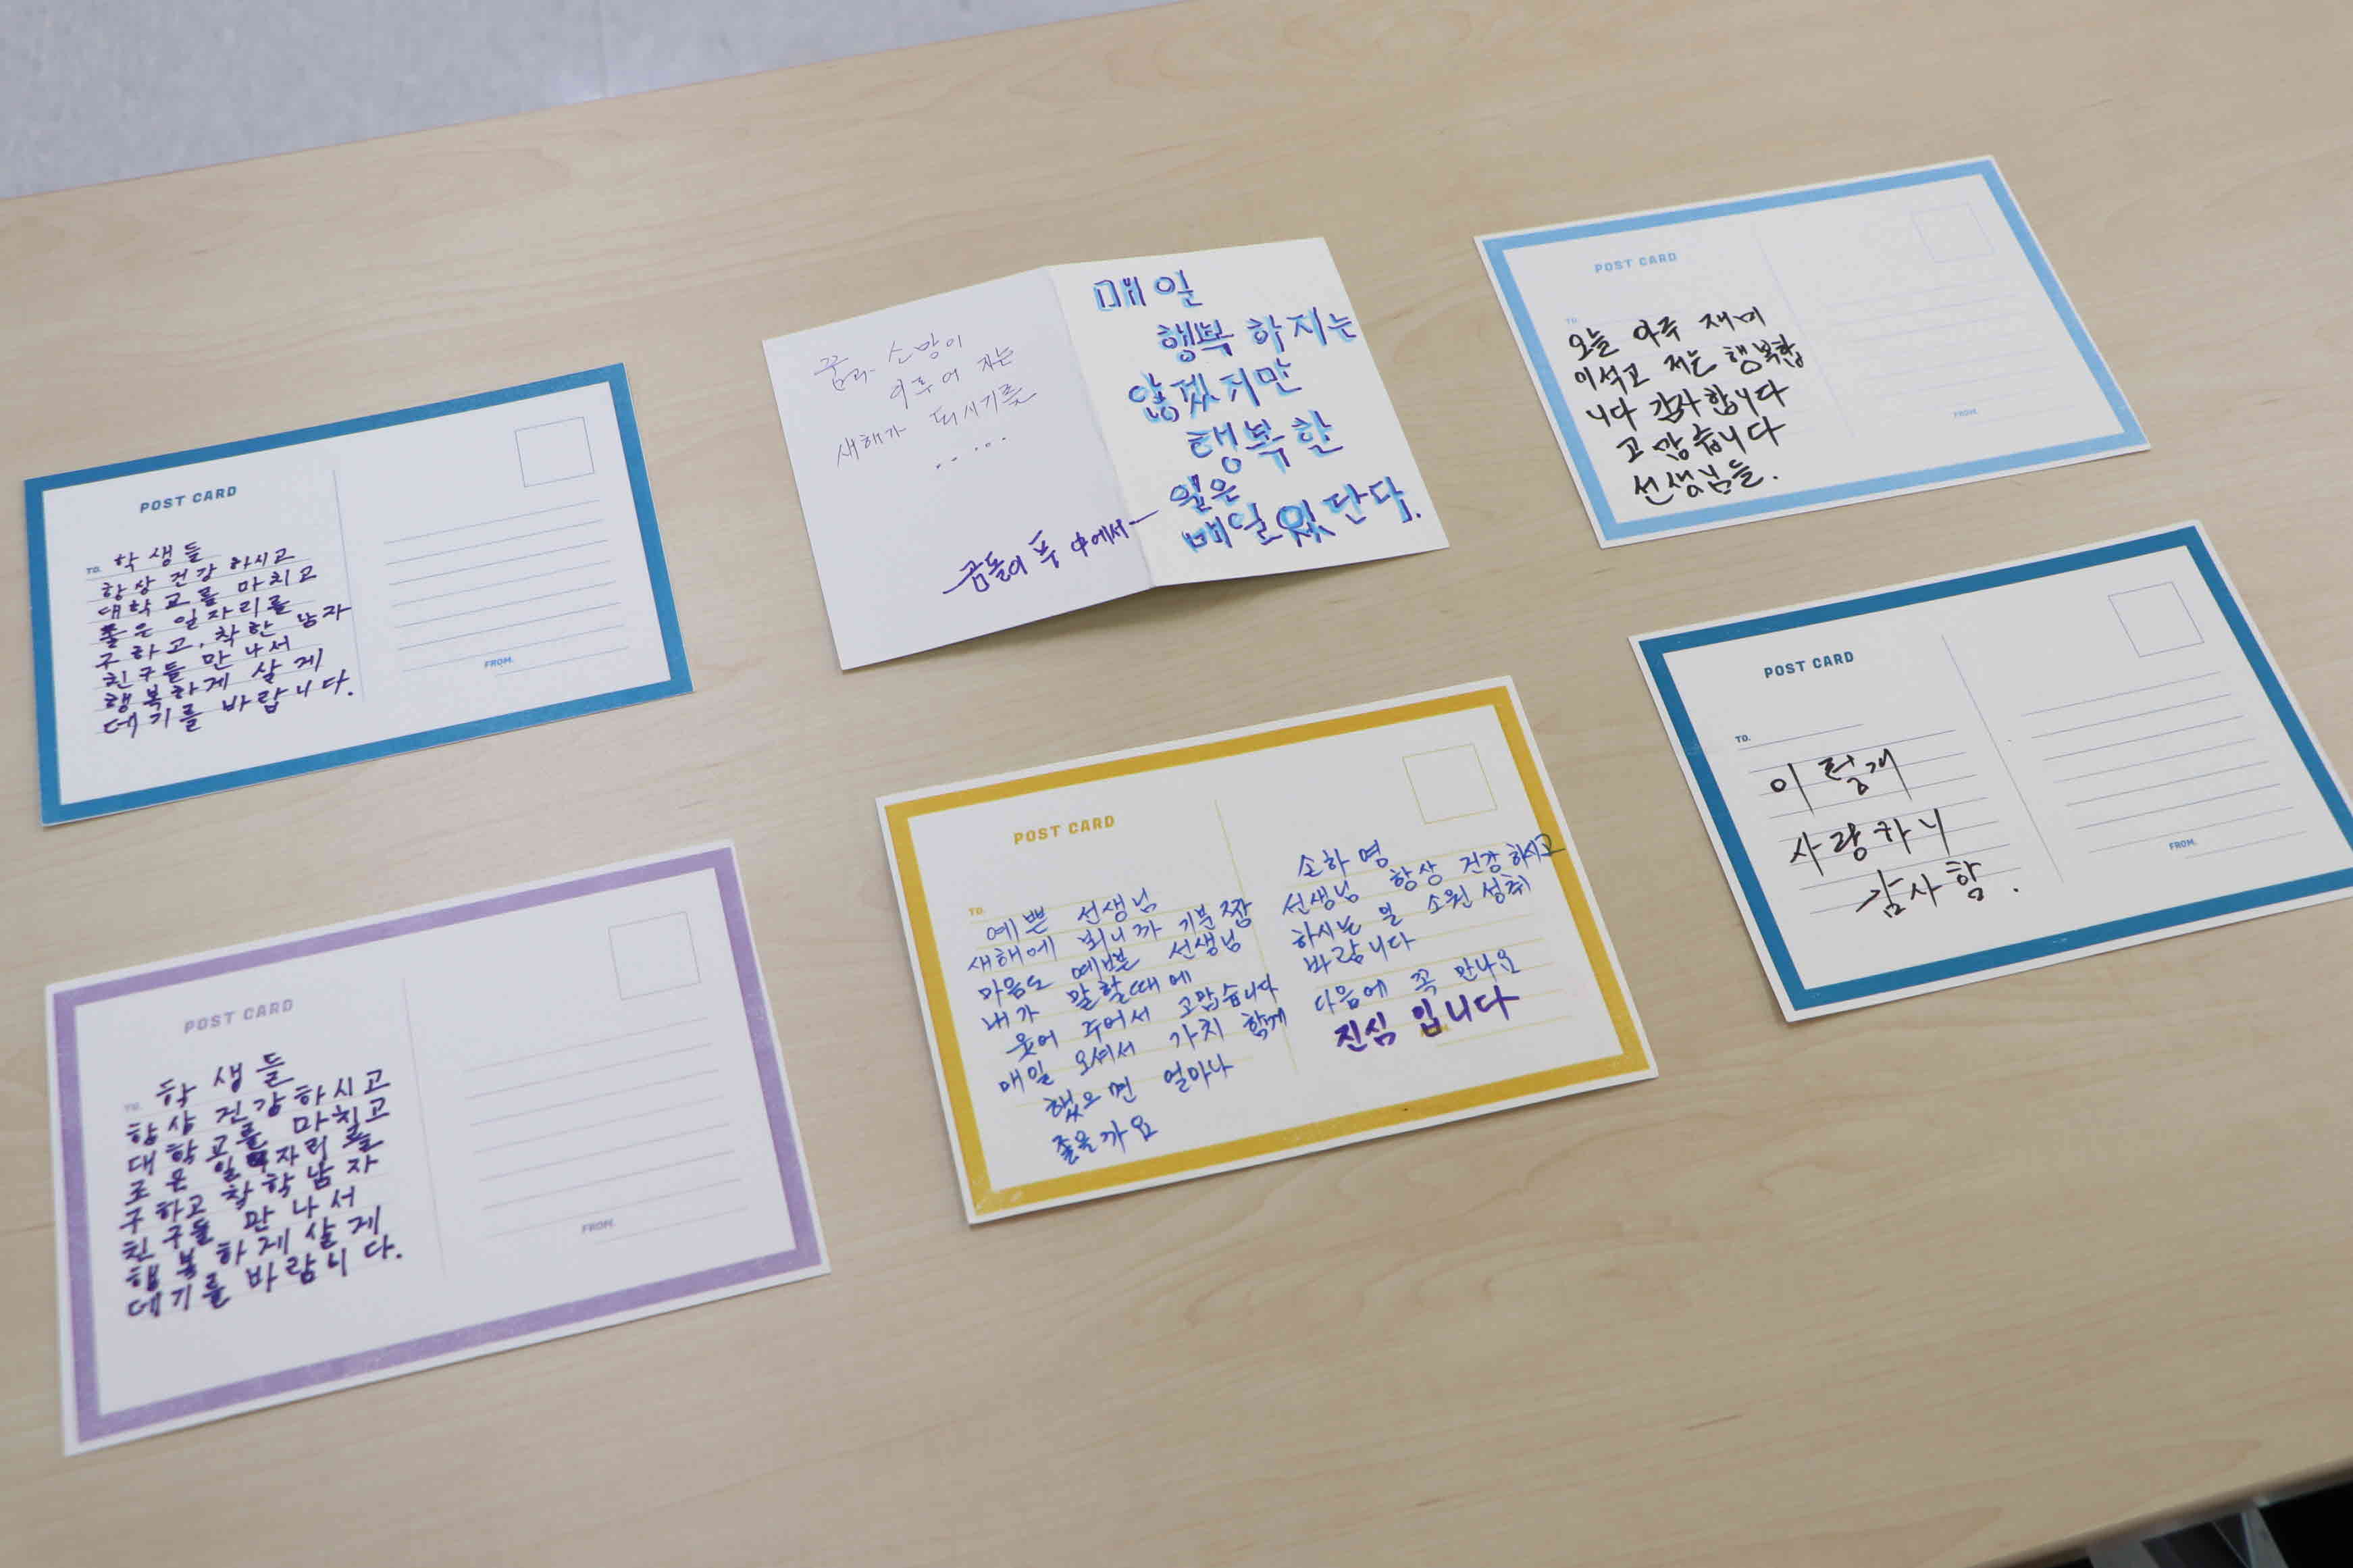 POST CARD
TO. 학생들
항상 건강 하시고
대학교를 마치고
좋은 일자리를
구하고, 착한 남자
친구들 만나서
행복하게 살게
데기를 바랍니다.
FROM.
꿈과 소망이
이루어 지는
새해가 되시기를
.. ...
매일
행복 하지는
않겠지만
행복한
일은
매일 있단다.
곰돌이 푸 中에서
POST CARD
TO.
오늘 아주 재미
이석고 저는 행복합
니다 감사합니다
고맙습니다
선생님들.
FROM.
POST CARD
TO. 학생들
항상 건강하시고
대학교를 마칠고
조은 일자리를
구하고 착학남자
친구들 만나서
행복하게 살게
데기를 바람니다.
FROM.
POST CARD
TO.
예쁜 선생님
새해에 뵈니까 기분 짱
마음도 예쁠 선생님
내가 말할때에
웃어 주어서 고맙습니다
매일 오셔서 가치 함께
했으면 얼마나
좋을까요
손하영
선생님 항상 건강 하시고
하시는 일 소원 성취
바람니다
다음에 꼭 만나요
진심 입니다
POST CARD
TO.
이렇개
사랑하니
감사함.
FROM.